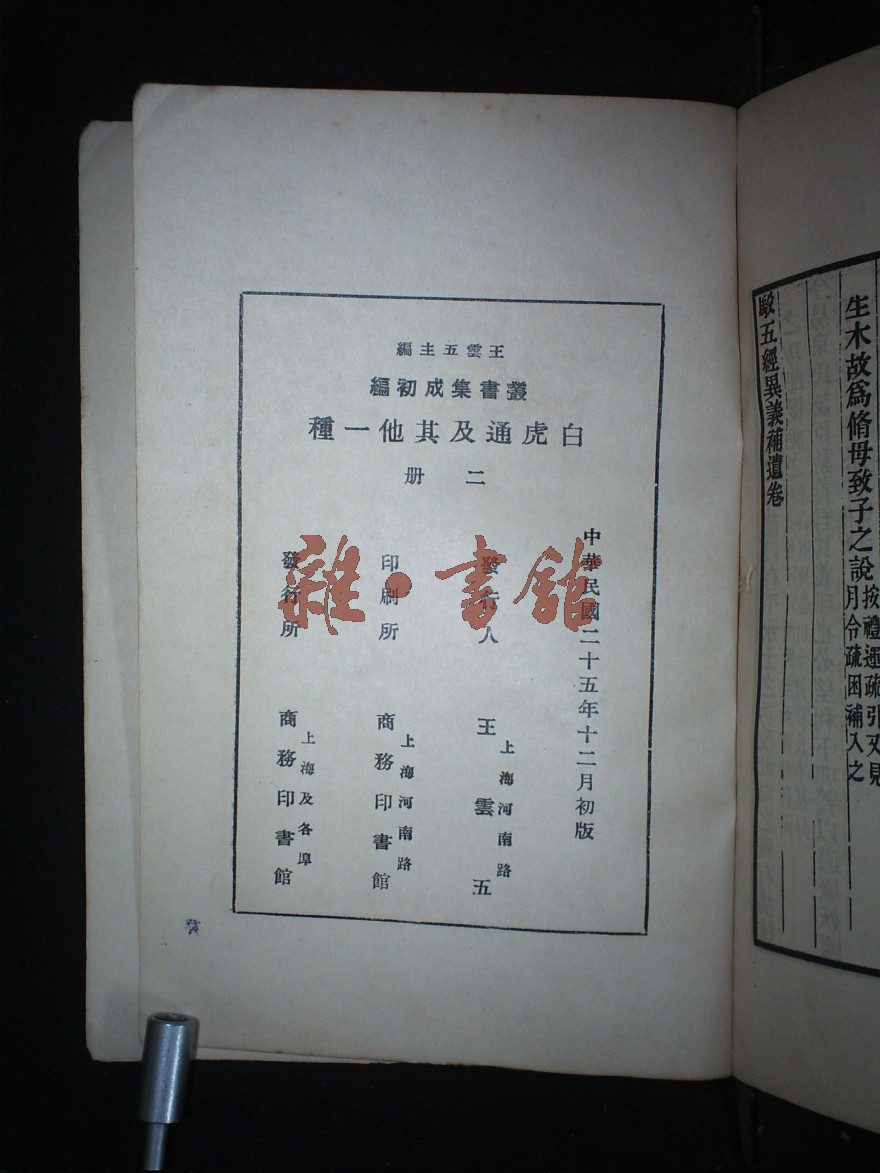 生木故爲脩母致子之說按禮運疏引又見
月令疏因補入之
駁五經異義補遺卷
王雲五主編
叢書集成初編
白虎通及其他一種
二册
中華民國二十五年十二月初版
發行人
上海河南路
王雲五
印刷所
上海河南路
商務印書館
發行所
上海及各埠
商務印書館
雜·書館